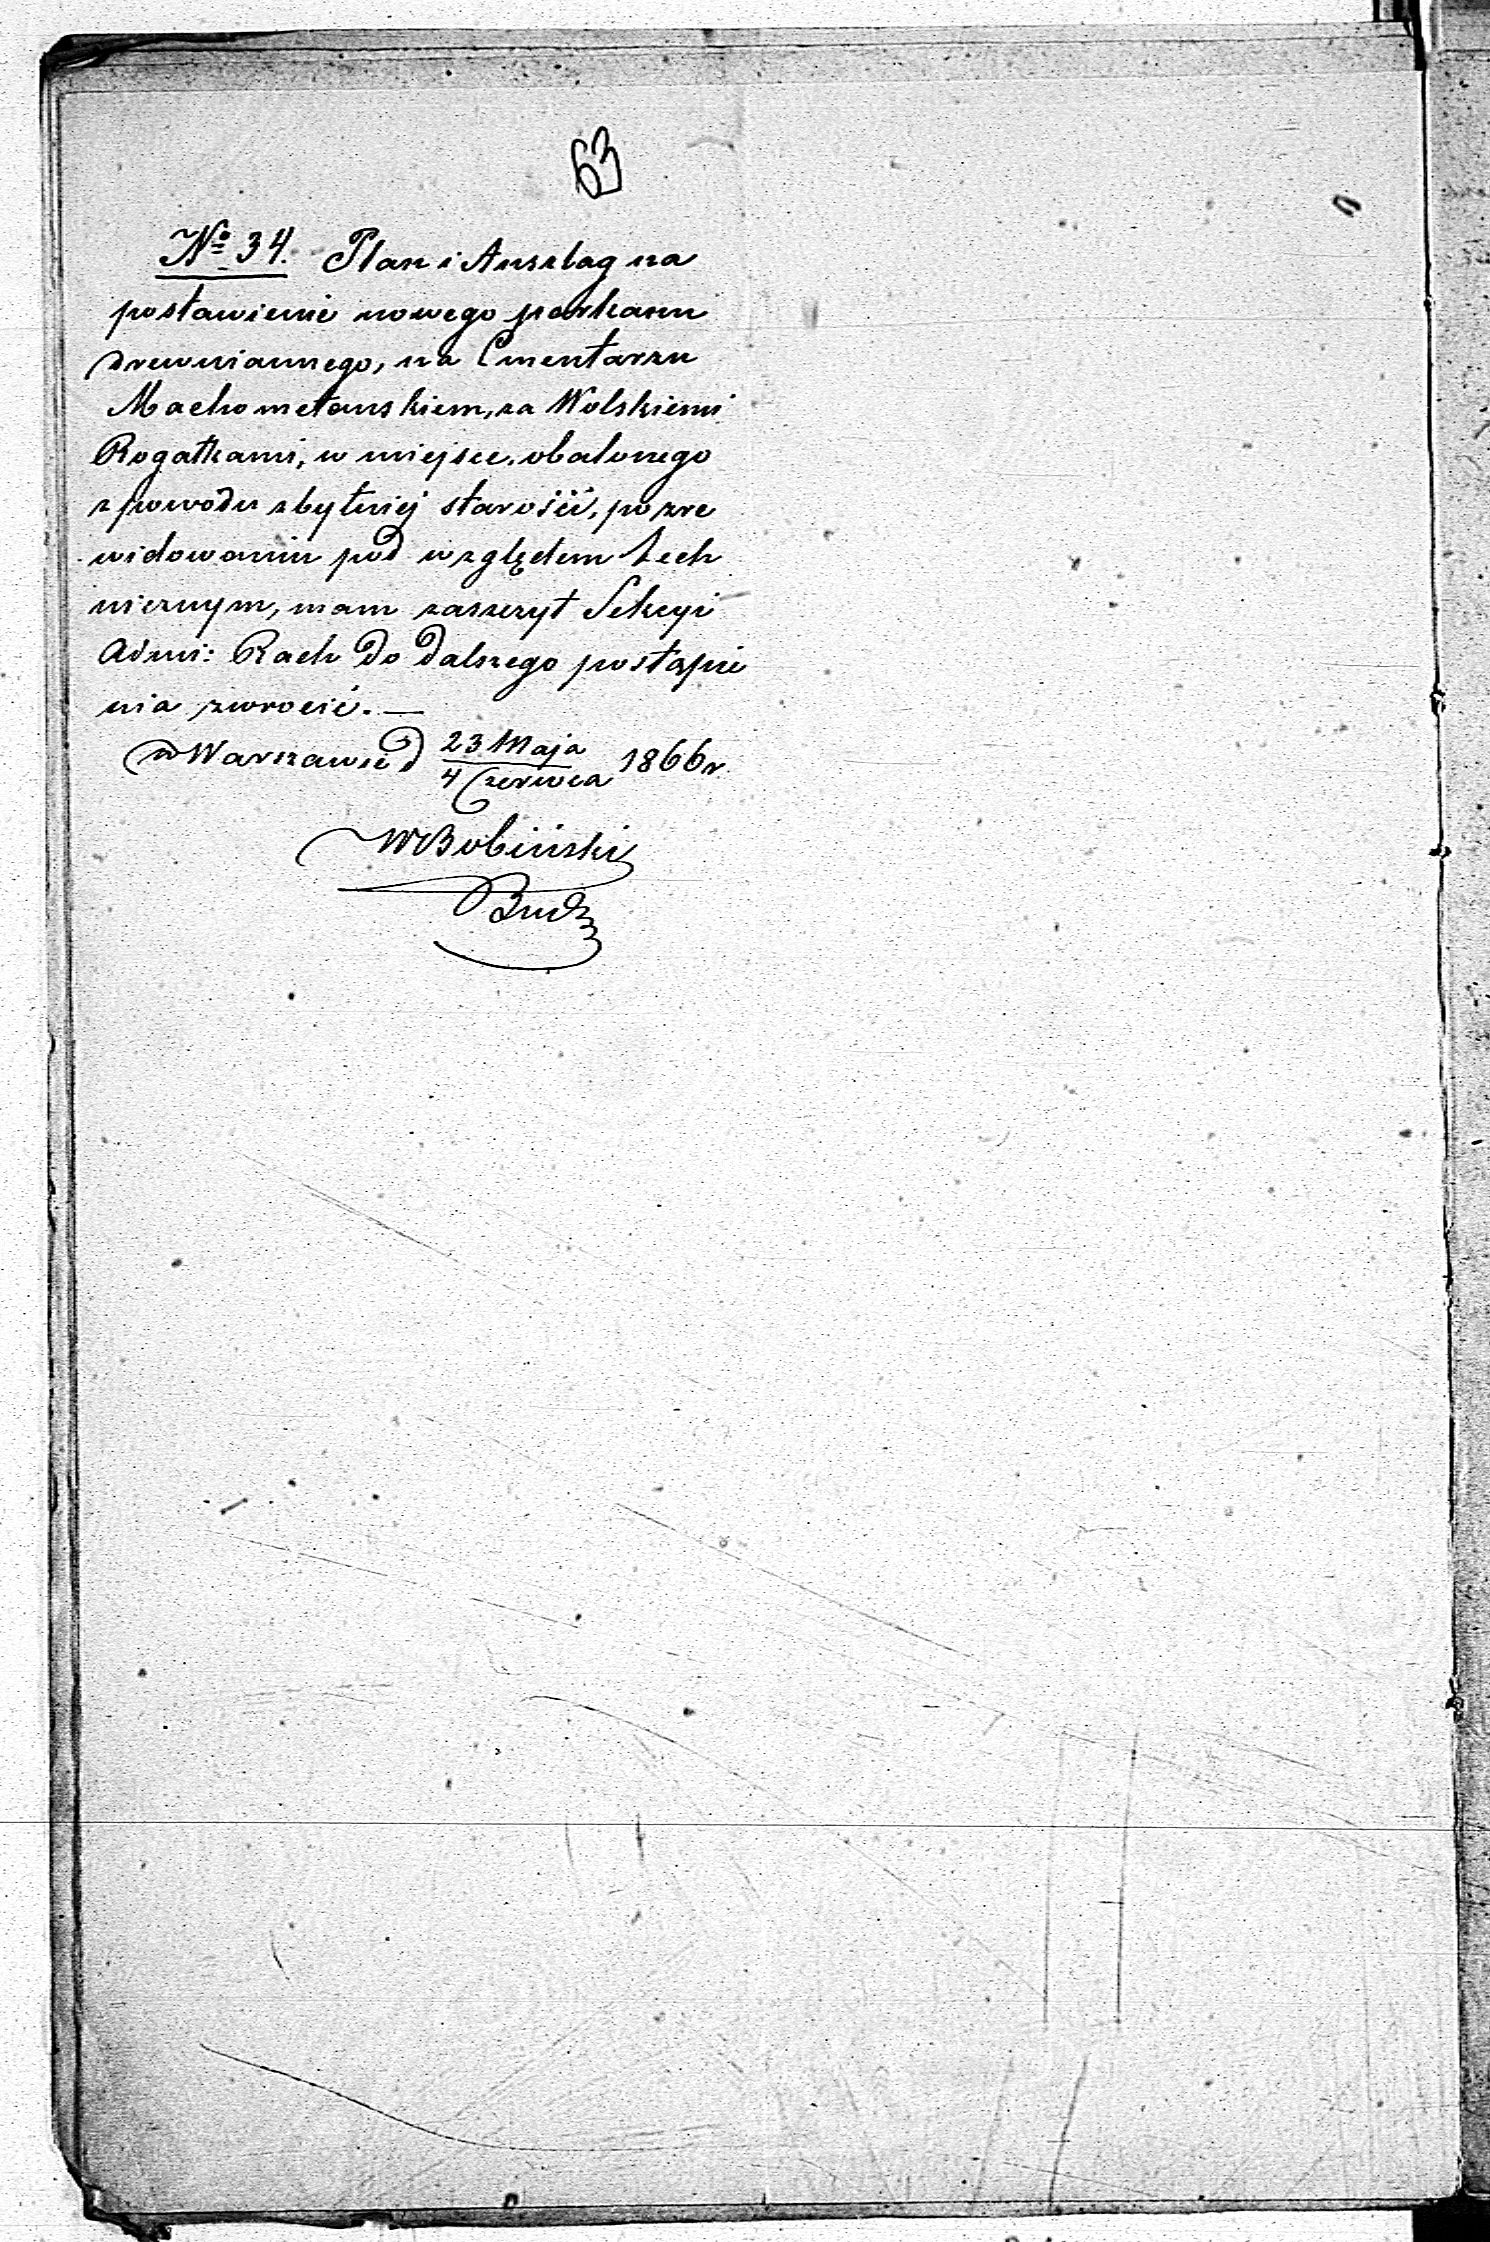 63
№ 34. Plan i Anszlag na
postawienie nowego parkanu
drewniannego, na Cmentarzu
Machometanskiem, za Wolskiemi
Rogatkami, w miejsce obalonego
z powodu zbytniej starości, po zre
widowaniu pod względem tech
nicznym, mam zaszczyt Sekcyi
Admi: Rach do dalszego postąpie
nia zwrócić. —
w Warszawie d 23 Maja / 4 Czerwca 1866 r.
W Bobiński
Bud